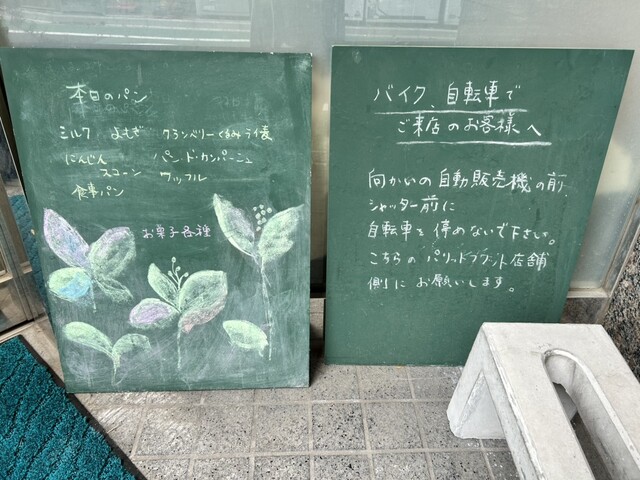 本日のパン
ミルク よもぎ クランベリーくるみライ麦
にんじん パン・ド・カンパーニュ
スコーン ワッフル
食事パン
お菓子各種
バイク、自転車で
ご来店のお客様へ
向かいの自動販売機の前、
シャッター前に
自転車を停めないで下さい。
こちらのパリッドブラント店舗
側にお願いします。